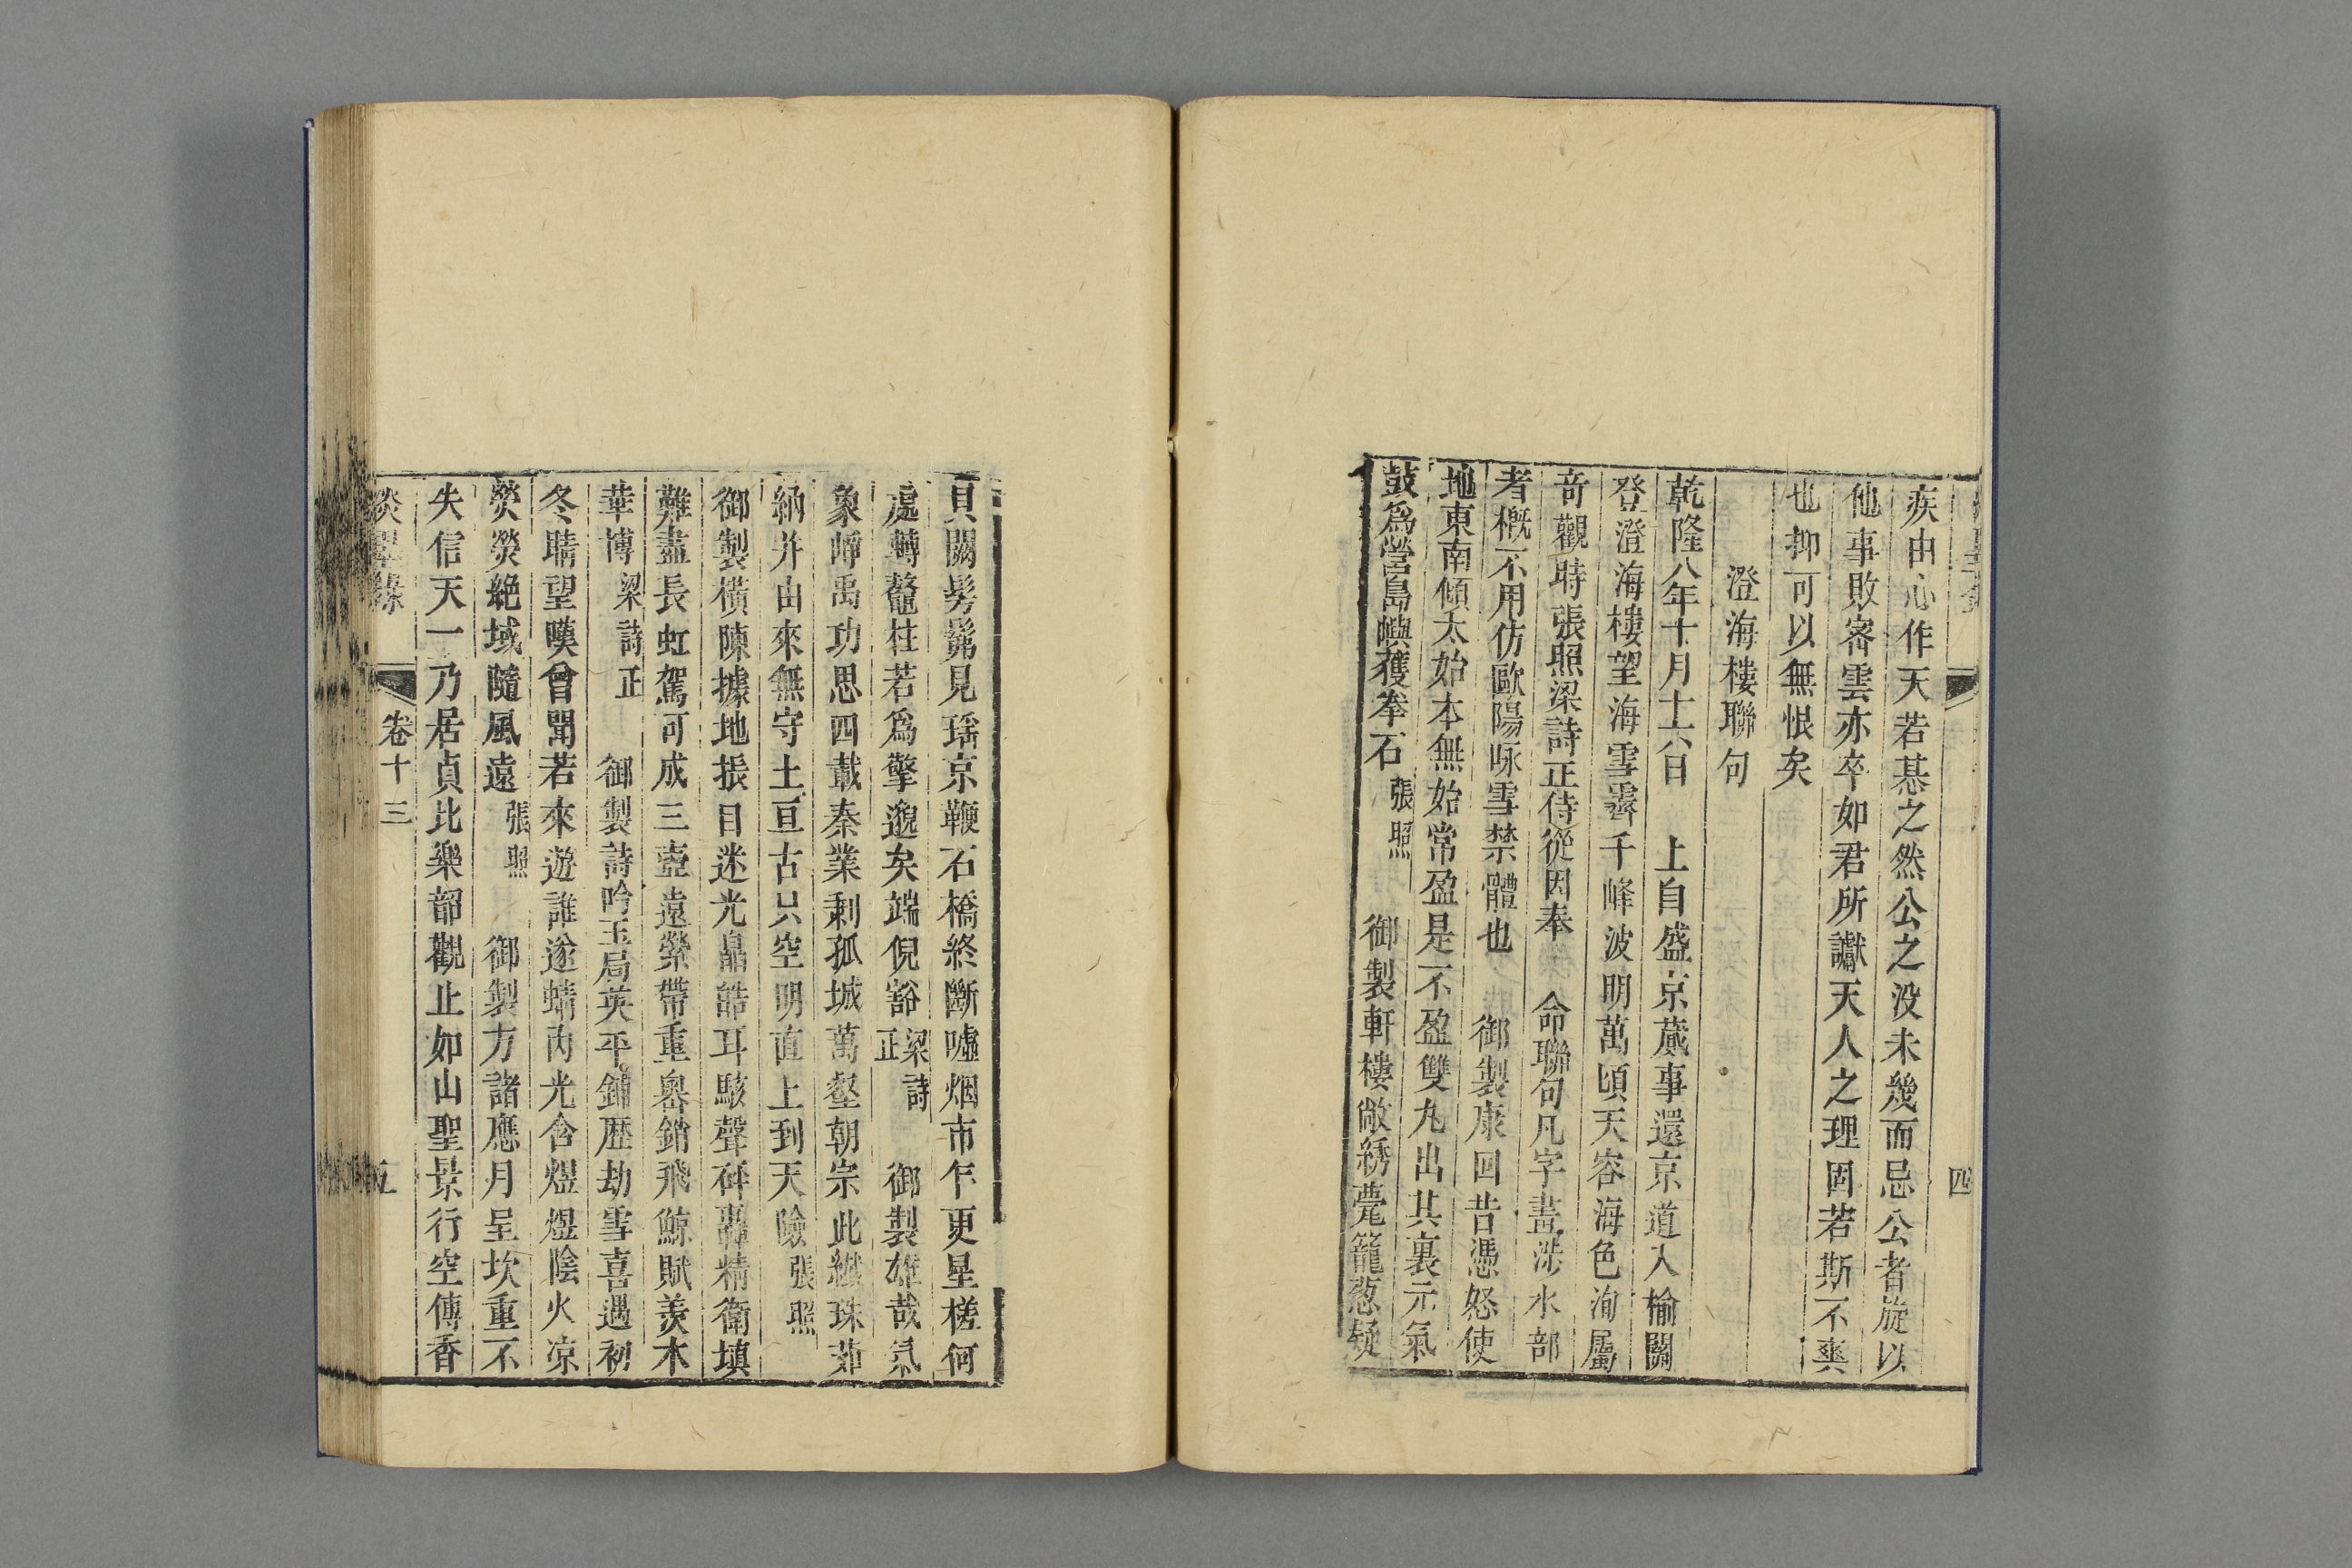 疾由心作天若惎之然公之没未幾而忌公者旋以
他事敗寄雲亦卒如君所讞天人之理固若斯不爽
也抑可以無恨矣
澄海樓聯句
乾隆八年十月十六日 上自盛京蕆事還京道入榆關
登澄海樓望海雪霽千峰波明萬頃天容海色洵屬
奇觀時張照梁詩正侍從因奉 命聯句凡字畫涉水部
者概不用仿歐陽咏雪禁體也 御製康回昔憑怒使
地東南傾太始本無始常盈是不盈雙丸出其裏元氣
鼓爲營島嶼獲拳石張照 御製軒樓敞綉甍籠葱疑
貝闕髣髴見瑶京鞭石橋終斷噓烟市乍更星槎何
處轉鼇柱若爲擎邈矣端倪豁梁詩正 御製雄哉氣
象崢禹功思四載秦業剩孤城萬壑朝宗此纖珠茹
納并由來無守土亘古只空明直上到天險張照
御製橫陳據地振目迷光皛皓耳駭聲砰轟精衛填
難盡長虹駕可成三壺遠縈帶重嶴銷飛鯨賦羨木
華博梁詩正 御製詩吟玉局英平鋪歴劫雪喜遇初
冬晴望暵曾聞若來遊誰遂蜻丙光含煜煜陰火凉
熒熒絶域隨風遠張照 御製方諸應月呈坎重不
失信天一乃居貞比樂韶觀止如山聖景行空傳香
卷十三
五
四